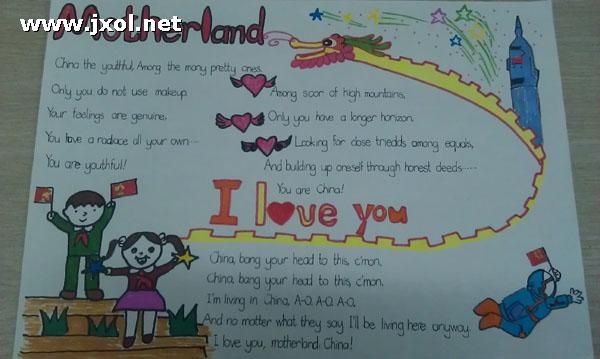 www.jxol.net
Motherland
China the youthful, Among the many pretty ones.
Only you do not use makeup.
Your feelings are genuine,
You have a radiace all your own---
You are youthful!
Among soar of high mountains,
Only you have a longer horizon.
Looking for close friedds among equals,
And building up oneself through honest deeds----
You are China!
I love you
China, bang your head to this, c'mon.
China, bang your head to this, c'mon.
I'm living in China, A-O, A-O, A-O,
And no matter what they say I'll be living here anyway.
I love you, motherland: China!